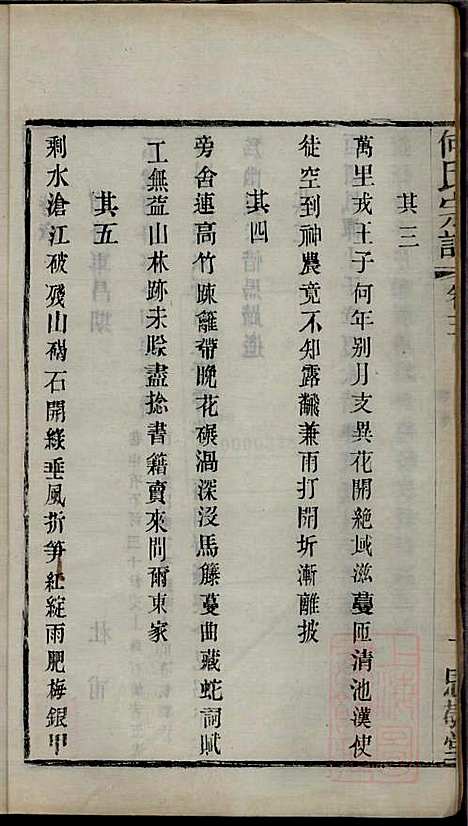 何氏宗譜
其三
萬里戎王子何年别月支異花開絶域滋蔓匝清池漢使
徒空到神農竟不知露飜兼雨打開坼漸離披
其四
旁舍連高竹踈籬帶晚花碾渦深没馬籐蔓曲藏蛇詞賦
工無益山林跡未賖盡捻書籍賣來問爾東家
其五
剩水滄江破殘山碣石開綠垂風折笋紅綻雨肥梅銀甲